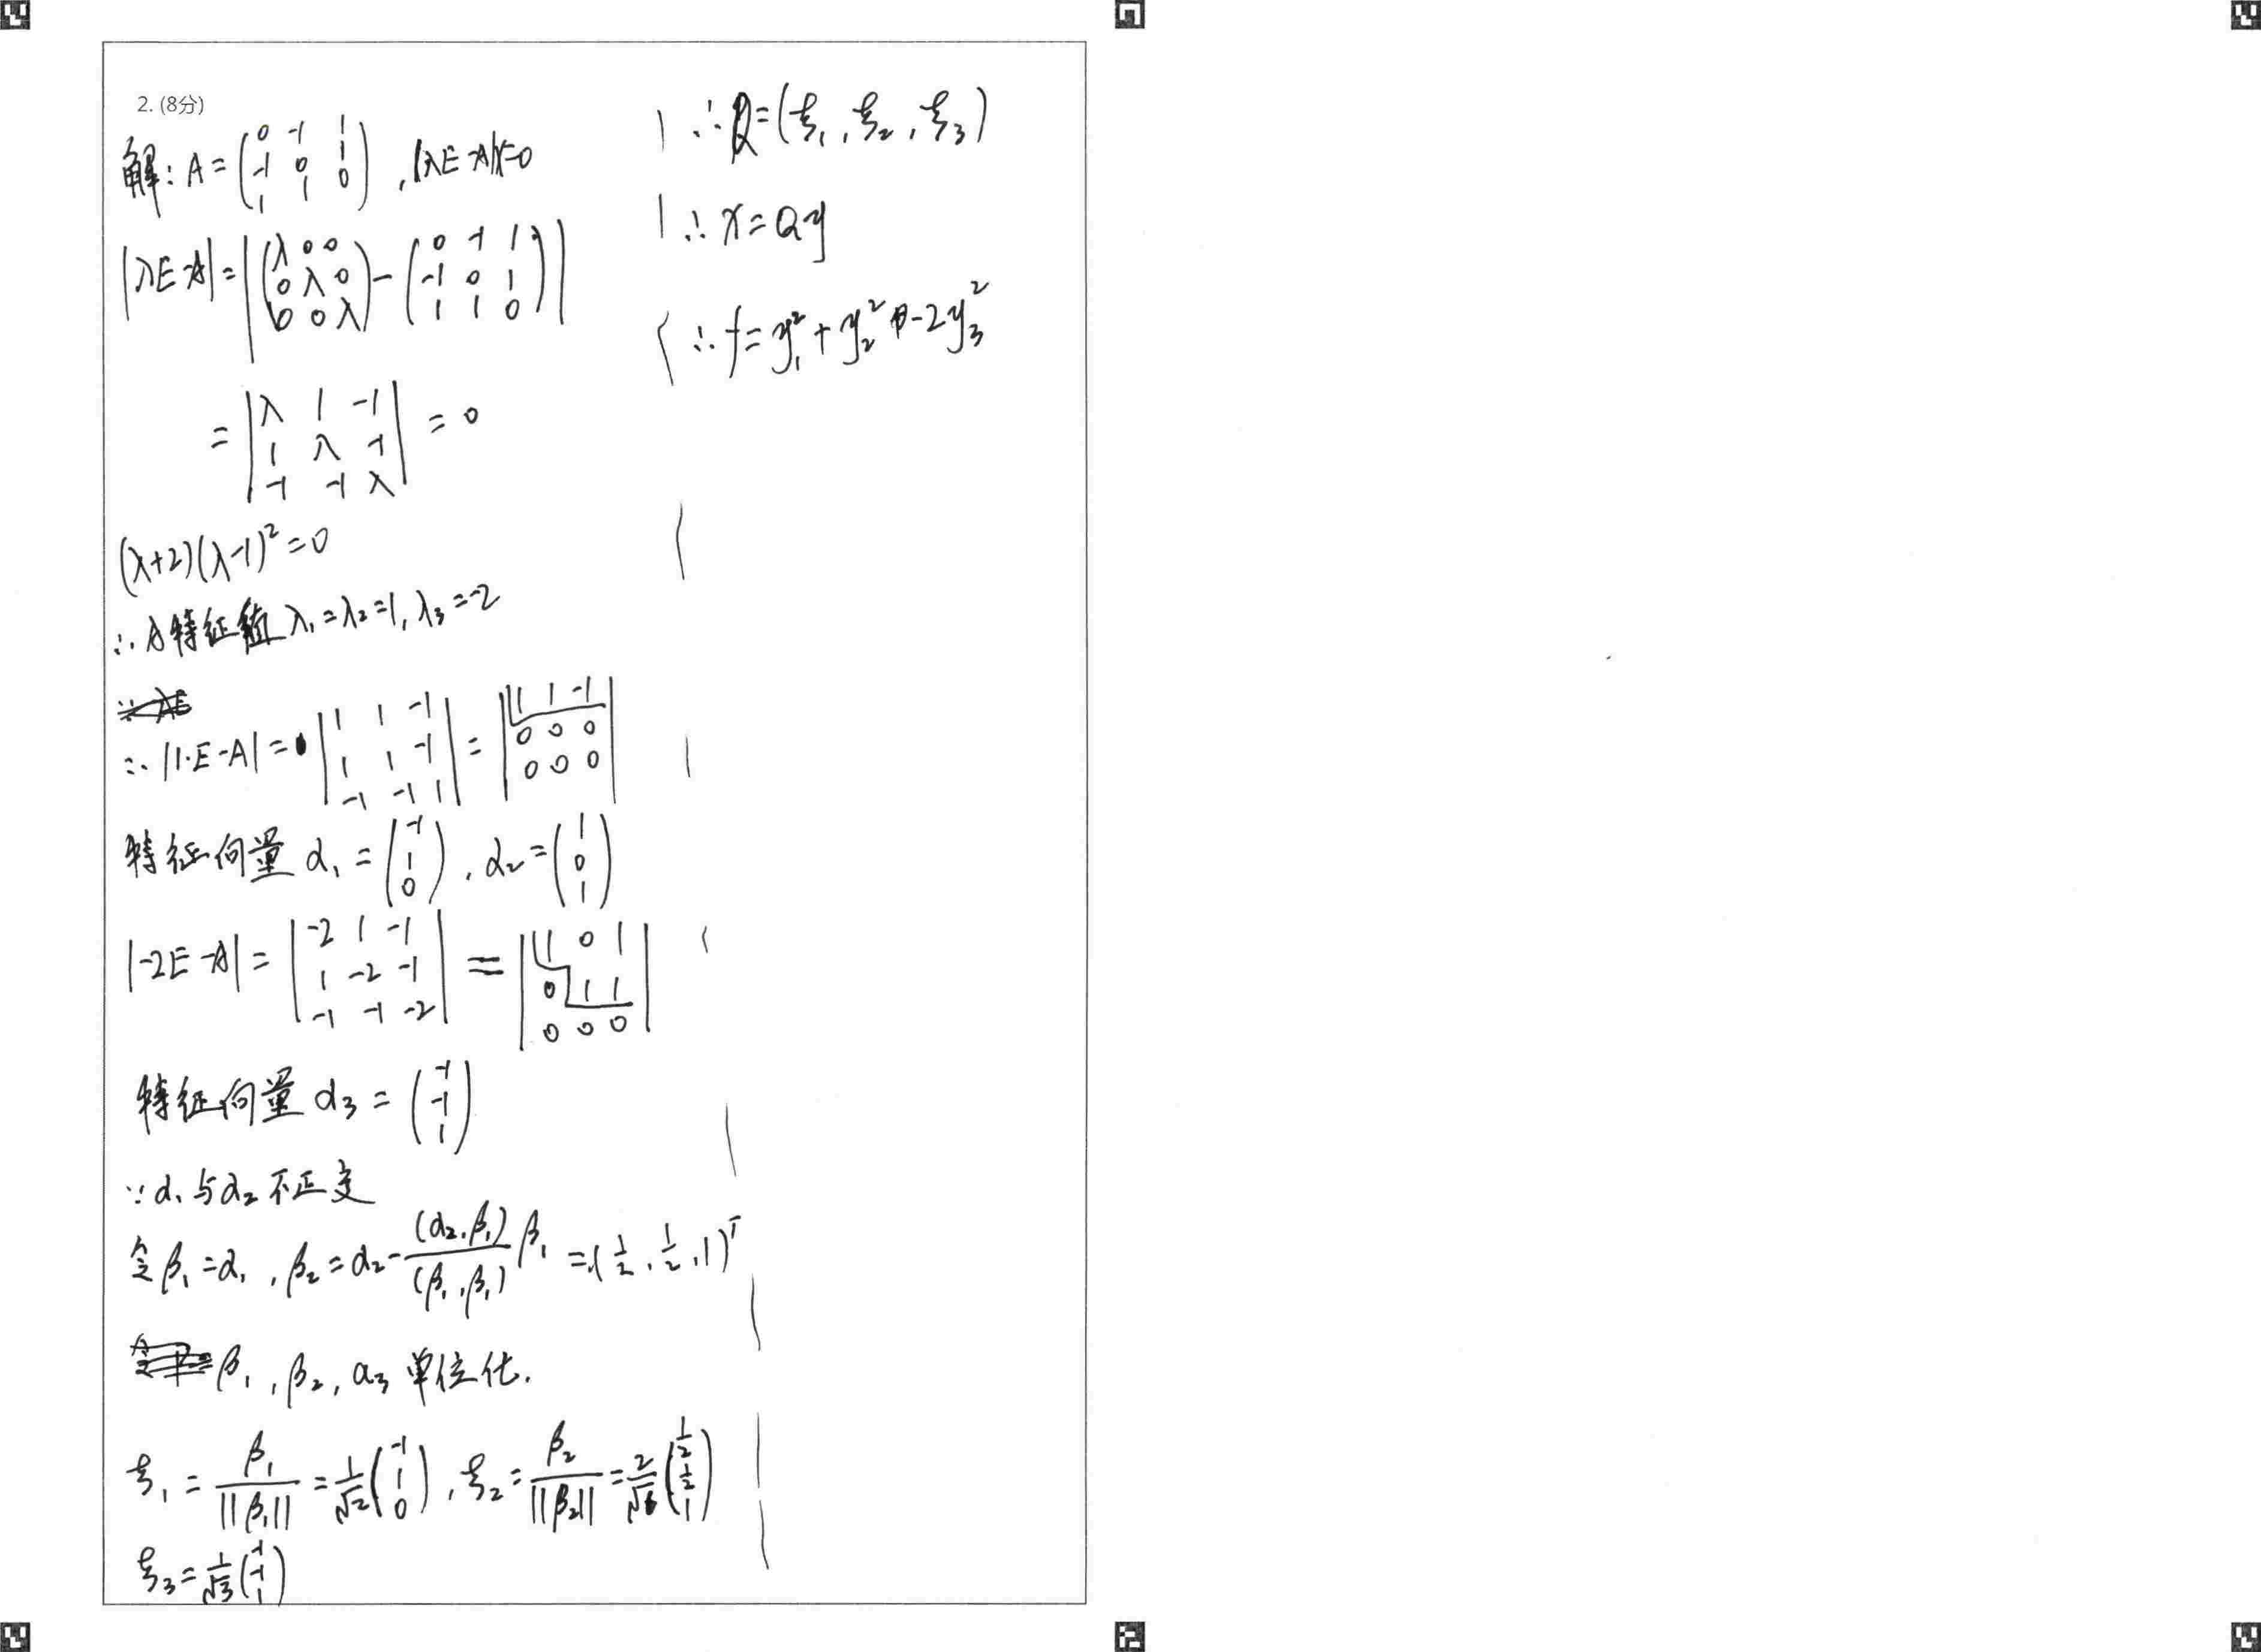 2. (8分)
解: A = (0 -1 1; -1 0 1; 1 1 0), |λE-A|=0
|λE-A| = |(λ 0 0; 0 λ 0; 0 0 λ) - (0 -1 1; -1 0 1; 1 1 0)|
= |λ 1 -1; 1 λ -1; -1 -1 λ| = 0
(λ+2)(λ-1)²=0
∴ A特征值 λ₁=λ₂=1, λ₃=-2
∴ |1·E-A| = |1 1 -1; 1 1 -1; -1 -1 1| = |1 1 -1; 0 0 0; 0 0 0|
特征向量 α₁ = (-1; 1; 0), α₂ = (1; 0; 1)
|-2E-A| = |-2 1 -1; 1 -2 -1; -1 -1 -2| = |1 0 1; 0 1 1; 0 0 0|
特征向量 α₃ = (-1; -1; 1)
∵ α₁与α₂不正交
令 β₁=α₁, β₂=α₂-(α₂,β₁)/(β₁,β₁) β₁ = (1/2, 1/2, 1)ᵀ
β₁, β₂, α₃ 单位化.
ξ₁ = β₁/||β₁|| = 1/√2 (-1; 1; 0), ξ₂ = β₂/||β₂|| = 2/√6 (1/2; 1/2; 1)
ξ₃ = 1/√3 (-1; -1; 1)
∴ Q=(ξ₁, ξ₂, ξ₃)
∴ x=Qy
∴ f=y₁²+y₂²-2y₃²